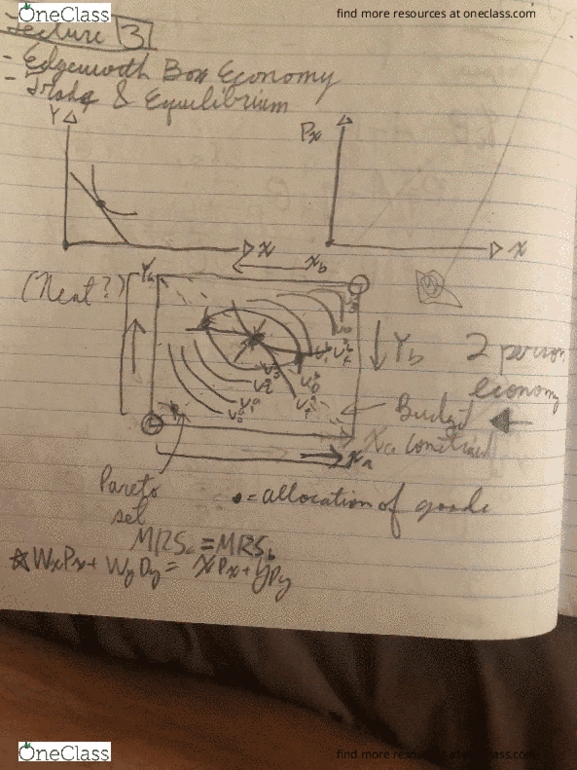 OneClass
find more resources at oneclass.com
Lecture 3
- Edgeworth Box Economy
- Trade & Equilibrium
Y
Px
X
X
Xb
(Neat?)
Ya
Yb
2 person
economy
Budget
Constraint
Xa
Pareto
set
• = allocation of goods
MRSa = MRSb
☆ WxPx + WyPy = XPx + YPy
OneClass
find more resources at oneclass.com